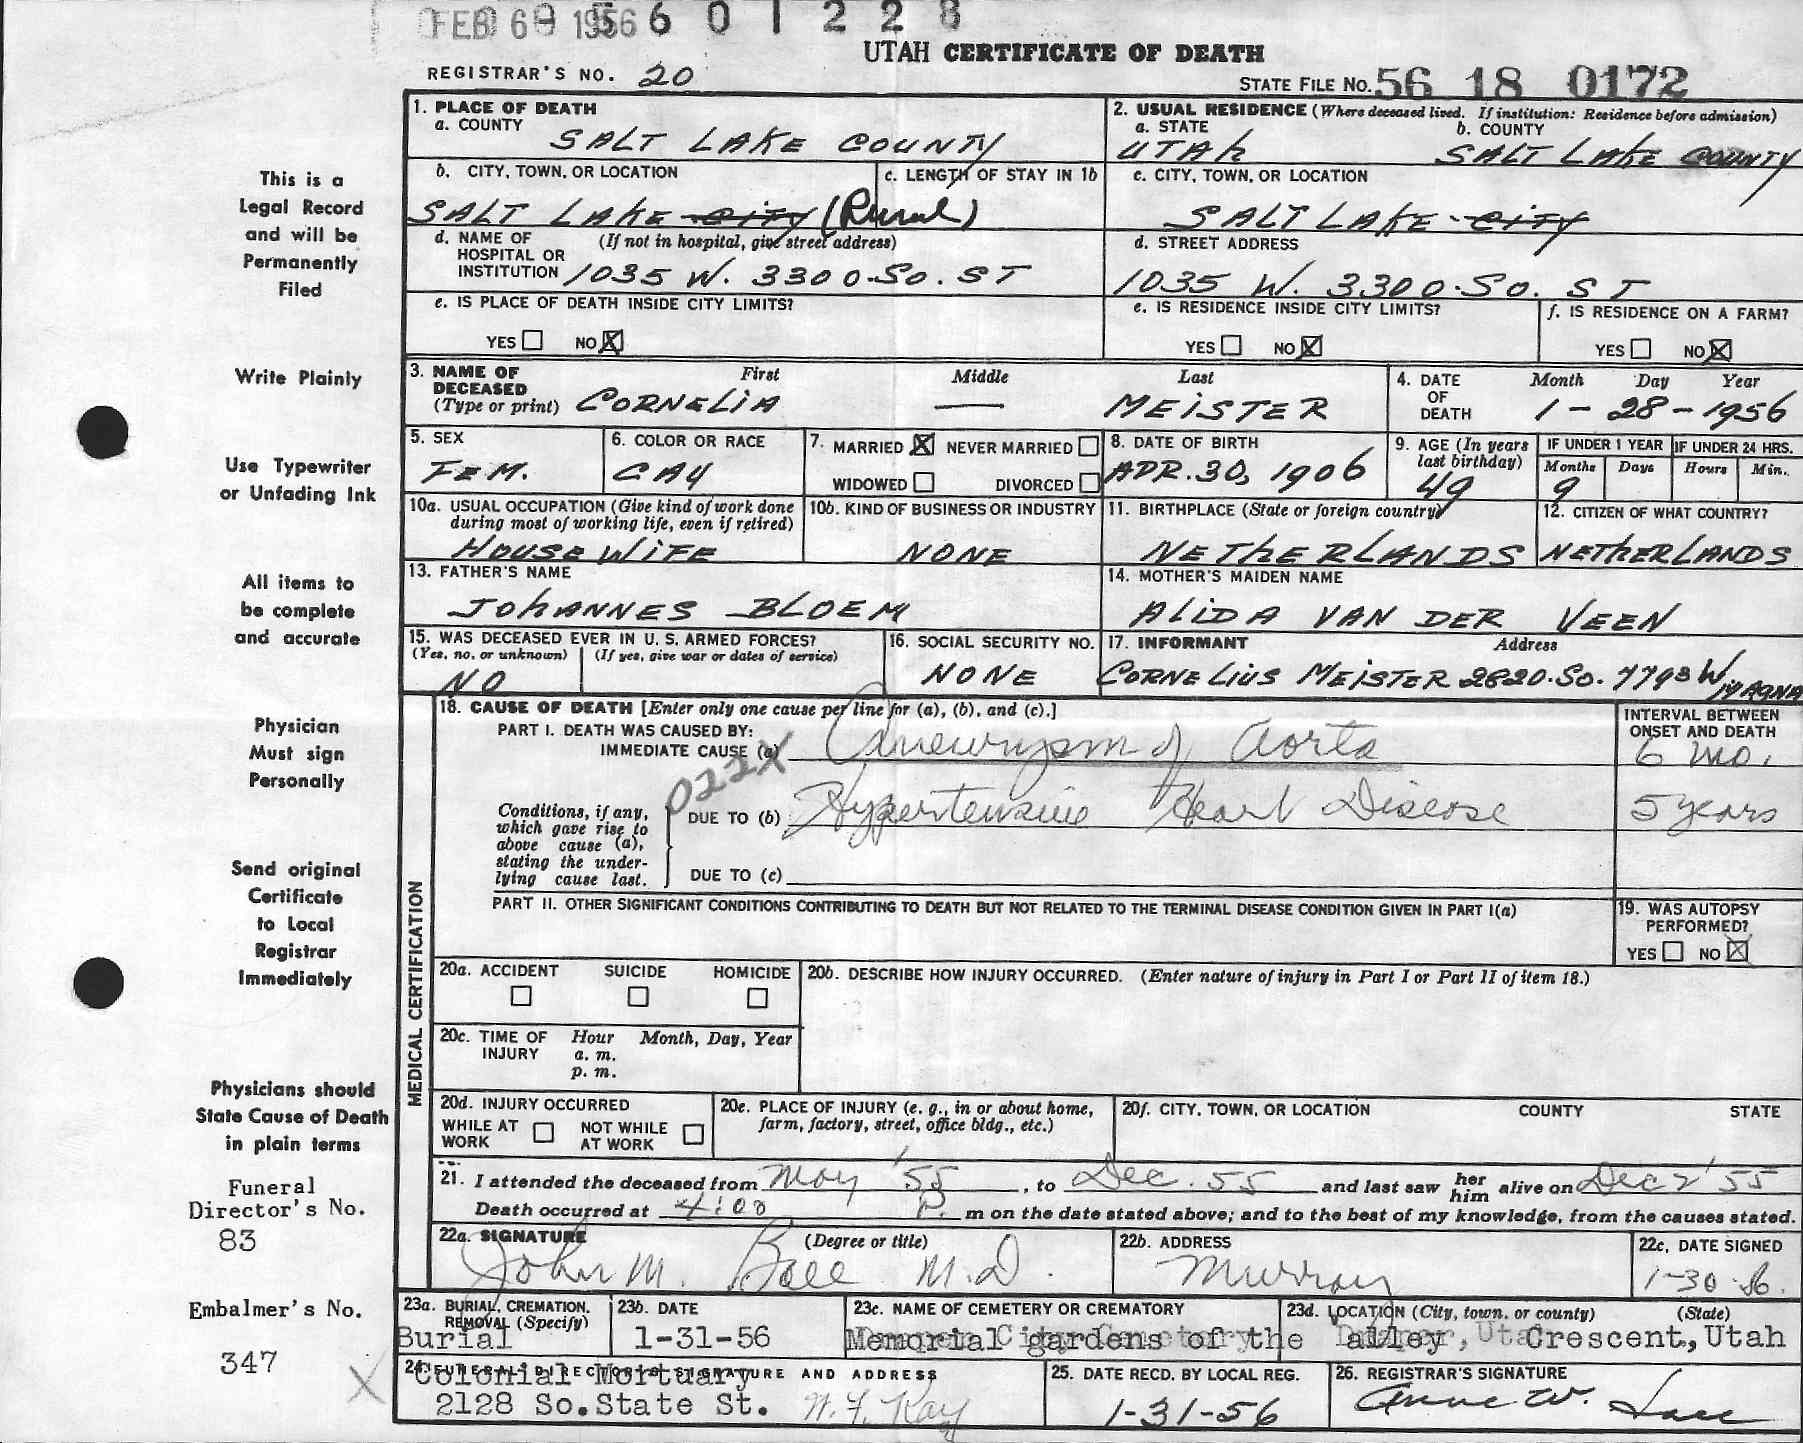 FEB 6 1956 6 0 1 2 2 8
UTAH CERTIFICATE OF DEATH
REGISTRAR'S NO. 20
STATE FILE NO. 56 18 0172
1. PLACE OF DEATH
a. COUNTY SALT LAKE COUNTY
2. USUAL RESIDENCE (Where deceased lived. If institution: Residence before admission)
a. STATE UTAH b. COUNTY SALT LAKE COUNTY
b. CITY, TOWN, OR LOCATION SALT LAKE CITY (Rural)
c. LENGTH OF STAY IN 1b
c. CITY, TOWN, OR LOCATION SALT LAKE CITY
d. NAME OF HOSPITAL OR INSTITUTION (If not in hospital, give street address) 1035 W. 3300 So. ST
d. STREET ADDRESS 1035 W. 3300 So. ST
e. IS PLACE OF DEATH INSIDE CITY LIMITS?
YES ☐ NO ☒
e. IS RESIDENCE INSIDE CITY LIMITS?
YES ☐ NO ☒
f. IS RESIDENCE ON A FARM?
YES ☐ NO ☒
3. NAME OF DECEASED (Type or print) First Middle Last
CORNELIA — MEISTER
4. DATE OF DEATH Month Day Year
1-28-1956
5. SEX FEM.
6. COLOR OR RACE CAU
7. MARRIED ☒ NEVER MARRIED ☐
WIDOWED ☐ DIVORCED ☐
8. DATE OF BIRTH APR. 30, 1906
9. AGE (In years last birthday) 49
IF UNDER 1 YEAR IF UNDER 24 HRS.
Months Days Hours Min.
9
10a. USUAL OCCUPATION (Give kind of work done during most of working life, even if retired) HOUSE WIFE
10b. KIND OF BUSINESS OR INDUSTRY NONE
11. BIRTHPLACE (State or foreign country) NETHERLANDS
12. CITIZEN OF WHAT COUNTRY? NETHERLANDS
13. FATHER'S NAME JOHANNES BLOEM
14. MOTHER'S MAIDEN NAME ALIDA VAN DER VEEN
15. WAS DECEASED EVER IN U. S. ARMED FORCES?
(Yes, no, or unknown) (If yes, give war or dates of service)
NO
16. SOCIAL SECURITY NO. NONE
17. INFORMANT Address
CORNELIUS MEISTER 2820 So. 7793 W. MAGNA
18. CAUSE OF DEATH [Enter only one cause per line for (a), (b), and (c).]
PART I. DEATH WAS CAUSED BY:
IMMEDIATE CAUSE (a) Aneurysm of Aorta
022X
Conditions, if any, which gave rise to above cause (a), stating the underlying cause last.
DUE TO (b) Hypertensive Heart Disease
DUE TO (c)
INTERVAL BETWEEN ONSET AND DEATH
6 mo.
5 years
PART II. OTHER SIGNIFICANT CONDITIONS CONTRIBUTING TO DEATH BUT NOT RELATED TO THE TERMINAL DISEASE CONDITION GIVEN IN PART I(a)
19. WAS AUTOPSY PERFORMED?
YES ☐ NO ☒
MEDICAL CERTIFICATION
20a. ACCIDENT SUICIDE HOMICIDE
☐ ☐ ☐
20b. DESCRIBE HOW INJURY OCCURRED. (Enter nature of injury in Part I or Part II of item 18.)
20c. TIME OF INJURY Hour Month, Day, Year
a. m.
p. m.
20d. INJURY OCCURRED
WHILE AT WORK ☐ NOT WHILE AT WORK ☐
20e. PLACE OF INJURY (e. g., in or about home, farm, factory, street, office bldg., etc.)
20f. CITY, TOWN, OR LOCATION COUNTY STATE
21. I attended the deceased from May '55, to Dec. 55 and last saw her him alive on Dec 2 '55
Death occurred at 4:00 P. m on the date stated above; and to the best of my knowledge, from the causes stated.
22a. SIGNATURE (Degree or title)
John M. M.D.
22b. ADDRESS Murray
22c. DATE SIGNED 1-30-56.
23a. BURIAL, CREMATION, REMOVAL (Specify) Burial
23b. DATE 1-31-56
23c. NAME OF CEMETERY OR CREMATORY
Memorial gardens of the alley
23d. LOCATION (City, town, or county) (State)
Crescent, Utah
24. FUNERAL DIRECTOR'S SIGNATURE AND ADDRESS
Colonial Mortuary
2128 So. State St. W. F. Kay
25. DATE RECD. BY LOCAL REG. 1-31-56
26. REGISTRAR'S SIGNATURE
Anne W.
This is a
Legal Record
and will be
Permanently
Filed
Write Plainly
Use Typewriter
or Unfading Ink
All items to
be complete
and accurate
Physician
Must sign
Personally
Send original
Certificate
to Local
Registrar
Immediately
Physicians should
State Cause of Death
in plain terms
Funeral
Director's No.
83
Embalmer's No.
347
X